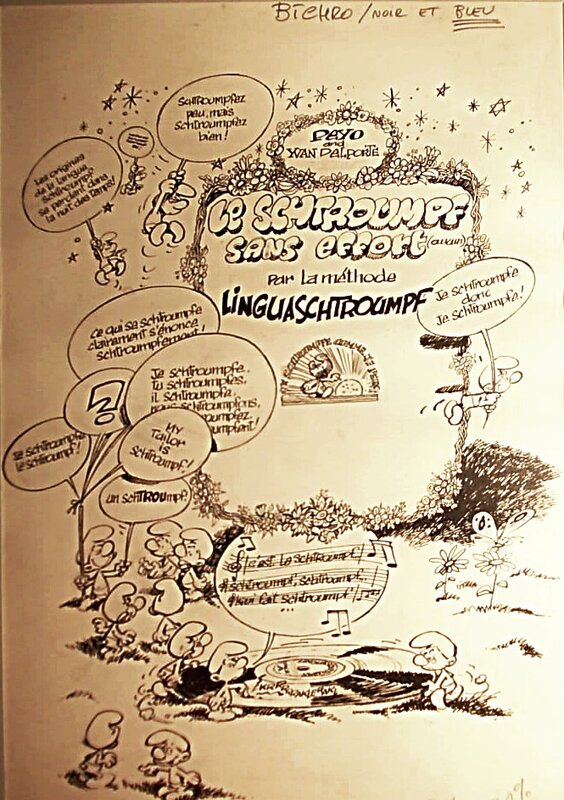 BICHRO/NOIR ET BLEU
SCHTROUMPFEZ
PEU, MAIS
SCHTROUMPFEZ
BIEN !
PEYO
and
YVAN DELPORTE
Les origines
de la langue
Schtroumpf
se perdent dans
la nuit des temps !
Le SCHTROUMPF
sans effort (aucun)
Par La méthode
LINGUASCHTROUMPF
Je schtroumpfe
donc
Je schtroumpfe !
Ce qui se schtroumpfe
clairement s'énonce
schtroumpfement !
Je schtroumpfe,
Tu schtroumpfes,
il schtroumpfe
nous schtroumpfons,
?
Je schtroumpfe
le schtroumpf !
MY
TAILOR
IS
SCHTROUMPF !
un schTROUmpf
c'est Le schtroumpf
schtroumpf, schtroumpf..
qui fait schtroumpf !
...